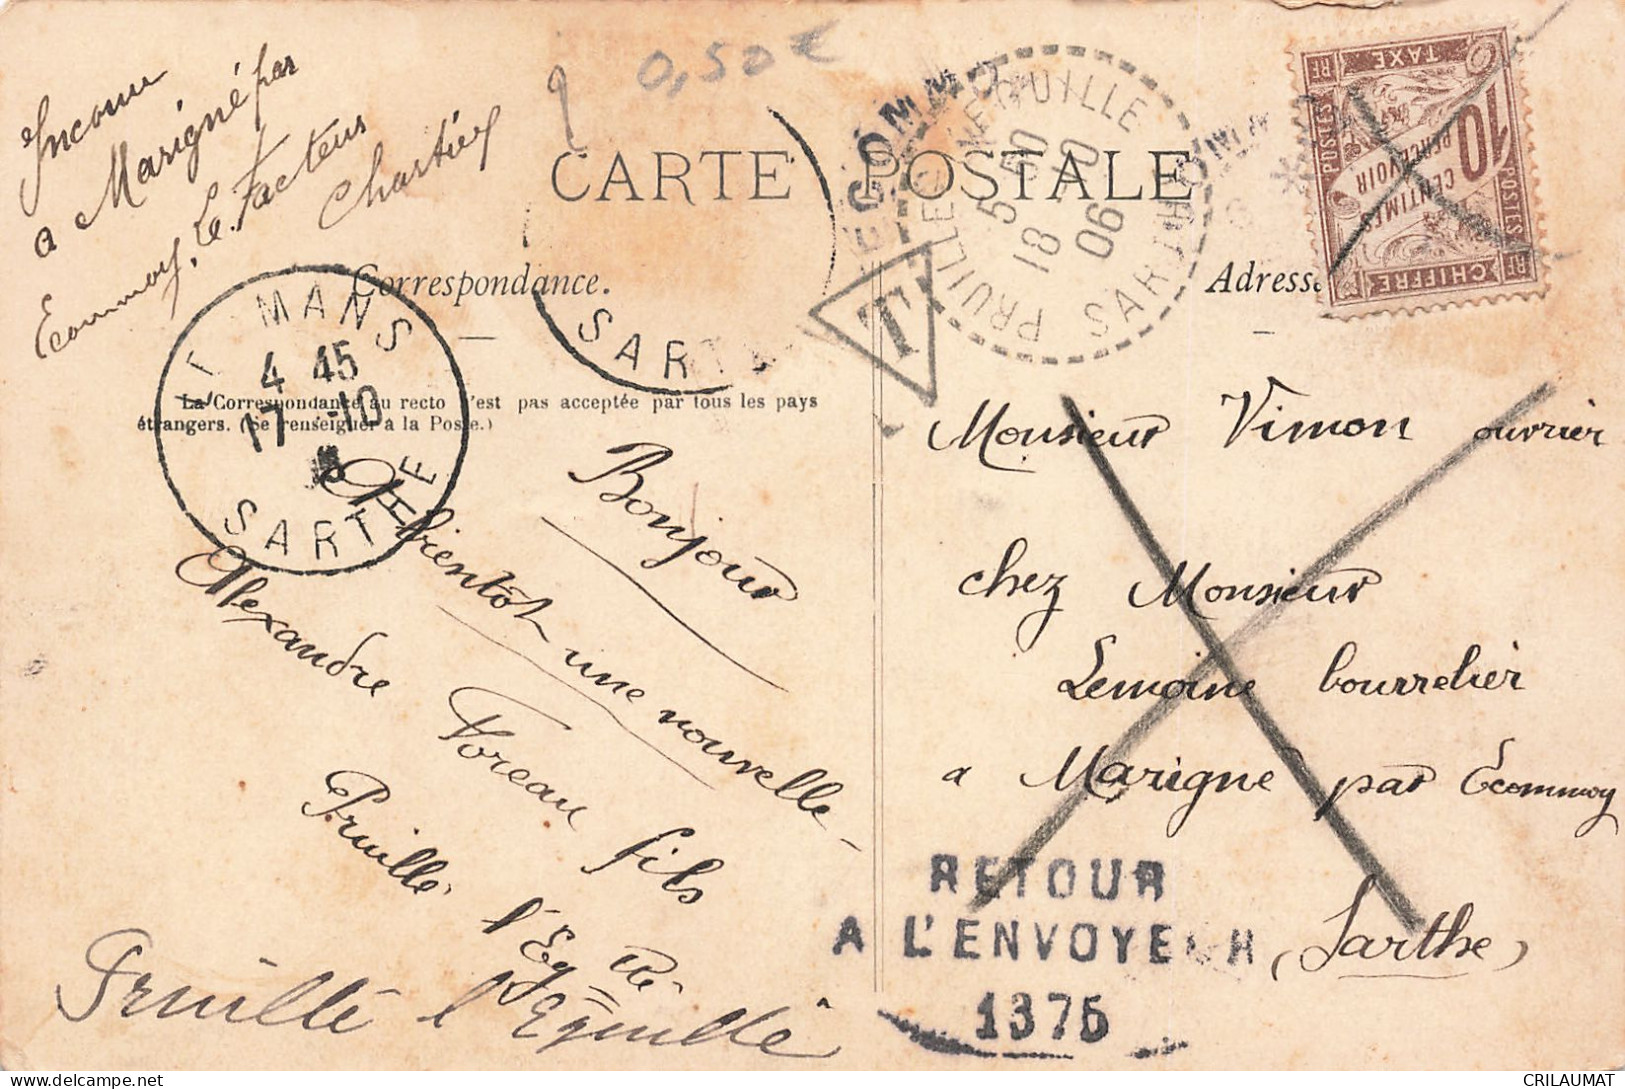 Inconnu
a Marigné par
Ecommoy, Le Facteur
Chartier
0,50 €
CARTE POSTALE
Correspondance.
Adresse
La Correspondance au recto n'est pas acceptée par tous les pays
étrangers. (Se renseigner à la Poste.)
MANS
4 45
17 -10
SARTHE
SARTHE
ECOMMO
PRUILLE L'EGUILLE
5 50
18 10
06
SARTHE
T
CHIFFRE TAXE
POSTES
POSTES
RF
RF
10
CENTIMES
A PERCEVOIR
Bonjour
A bientôt une nouvelle
Alexandre Voreau fils
Pruillé l'Eguillé
Pruillé l'Eguillé
Monsieur Vimon ouvrier
chez Monsieur
Lemoine bourrelier
a Marigne par Ecommoy
(Sarthe)
RETOUR
A L'ENVOYEUR
1375
CRILAUMAT